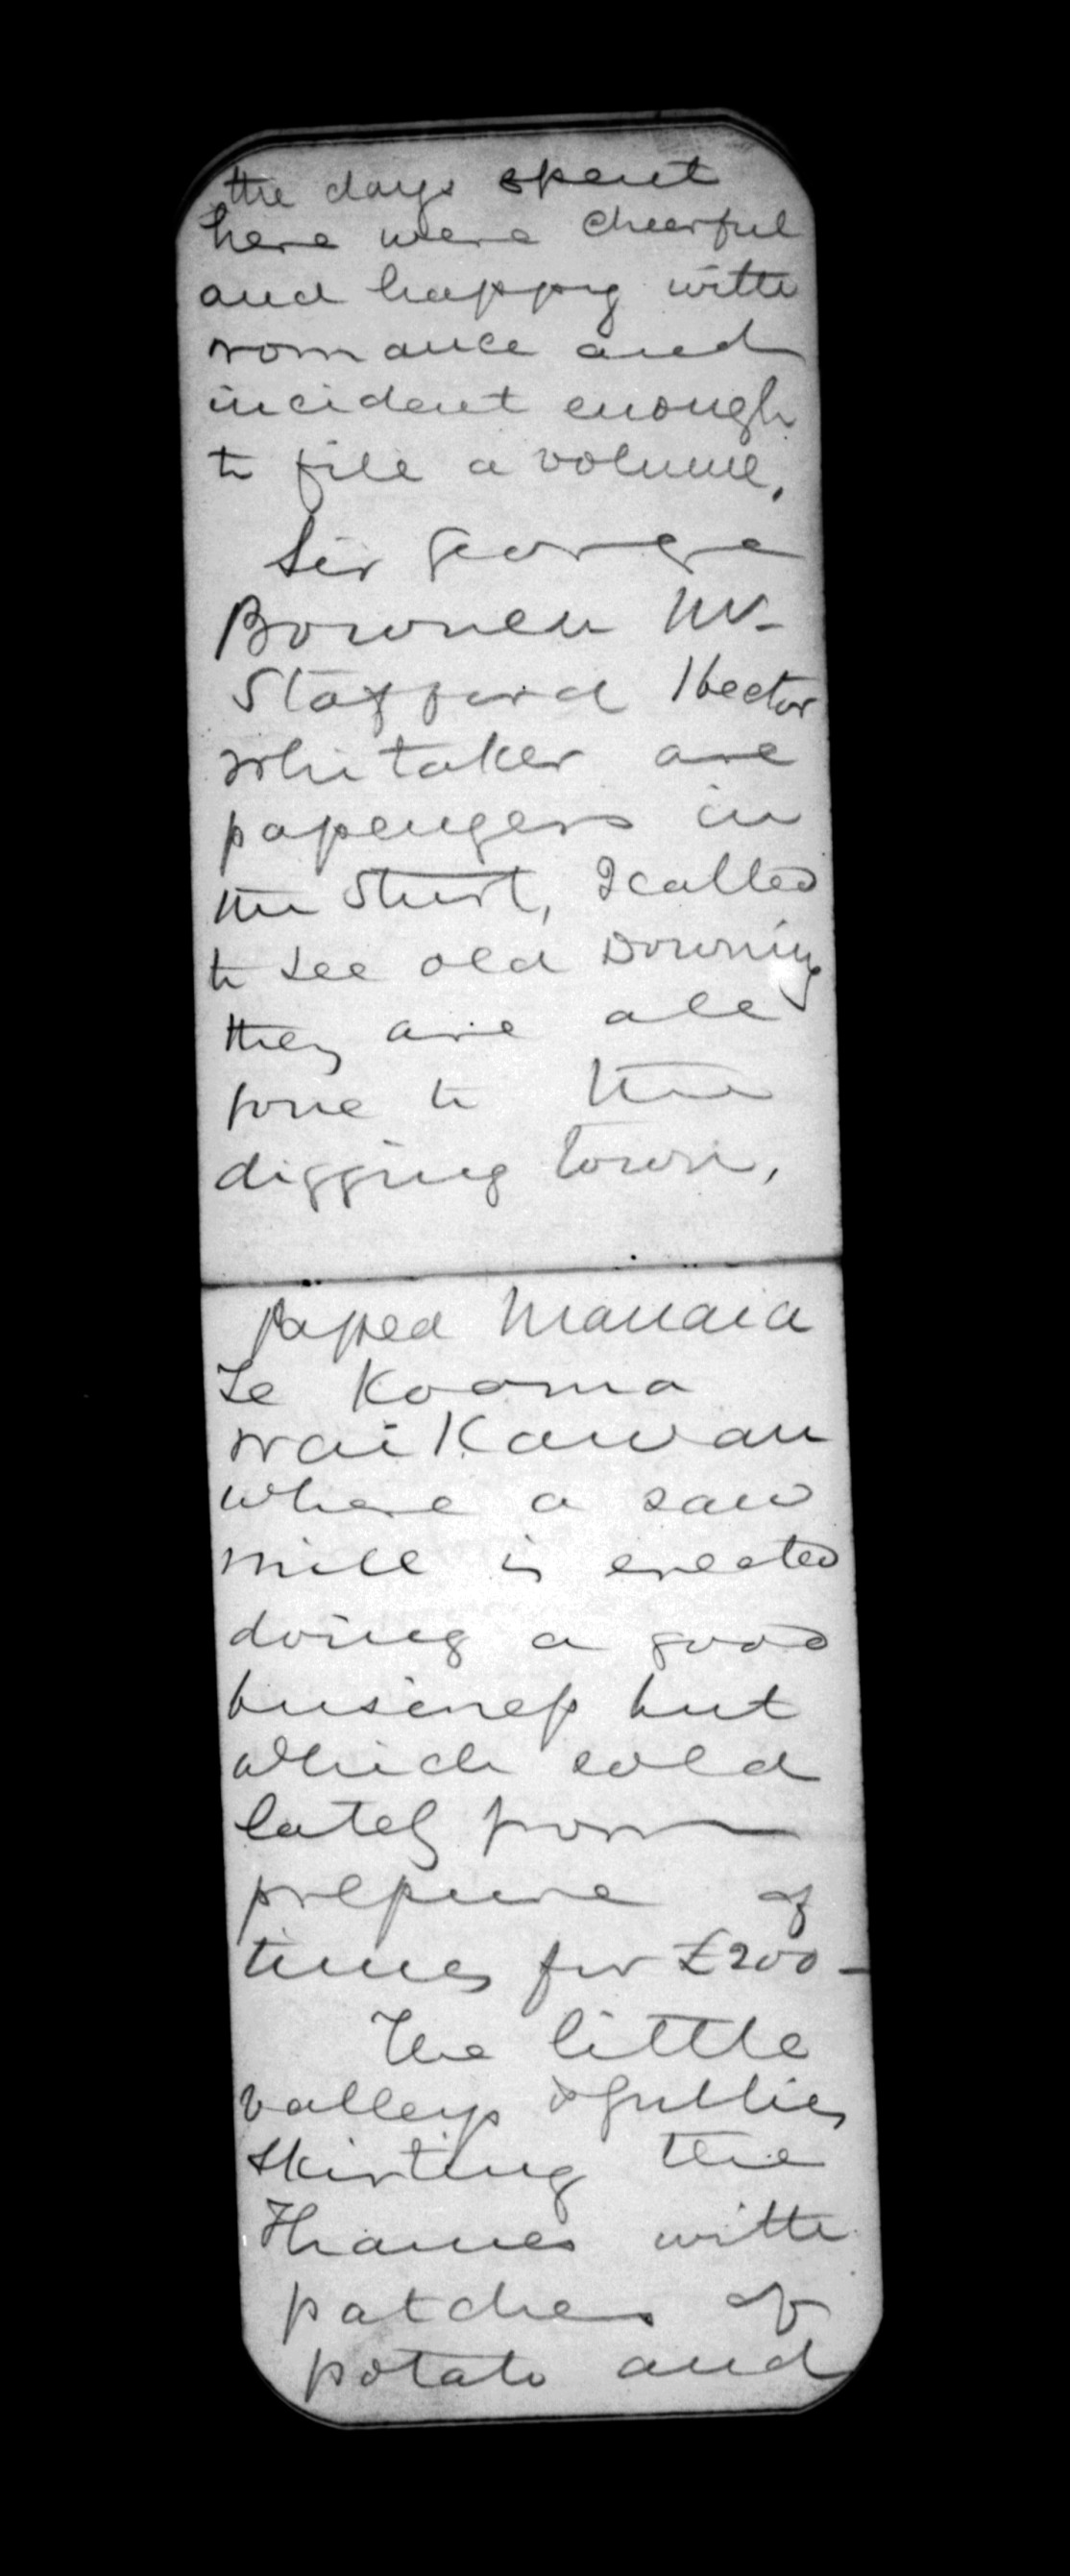 the days spent
here were cheerful
and happy with
romance and
incident enough
to fill a volume.
Sir George
Bownen Mr
Stafford Hector
Whitaker are
passengers in
the Sturt, I called
to see old Downing
they are all
gone to the
digging town,
passed Manaia
Te Kooma
Waikawau
where a saw
mill is erected
doing a good
business but
which sold
lately from
pressure of
times for £200 -
The little
valleys & gullies
skirting the
Thames with
patches of
potato and